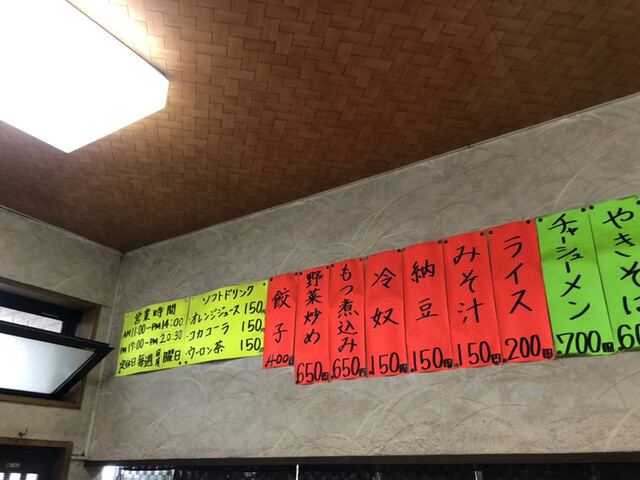 営業時間
AM11:00-PM14:00
PM17:00-PM20:30
定休日毎週月曜日
ソフトドリンク
・オレンジジュース150円
・コカコーラ 150円
・ウーロン茶 150円
餃子
400円
野菜炒め
650円
もつ煮込み
650円
冷奴
150円
納豆
150円
みそ汁
150円
ライス
200円
チャーシューメン
700円
やきそば